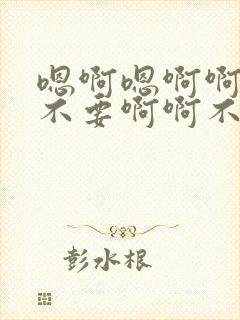 嗯啊嗯啊啊
不要啊啊不
彭水根